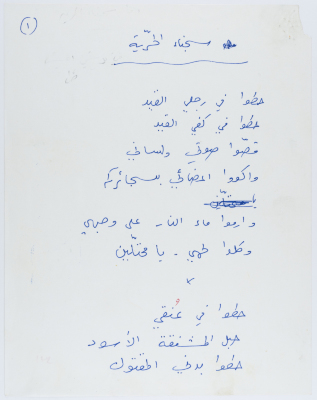 ١
سجناء الحرّية
حطوا في رجلي القيد
حطوا في كفي القيد
قصّوا صوتي ولساني
واكووا اعضائي بسجائركم
وارموا ماء النار على وجهي
وكلوا لحمي .. يا محتلّين
حطوا في عُنقي
حبل المشنقة الأسود
حطوا بدني المفتول